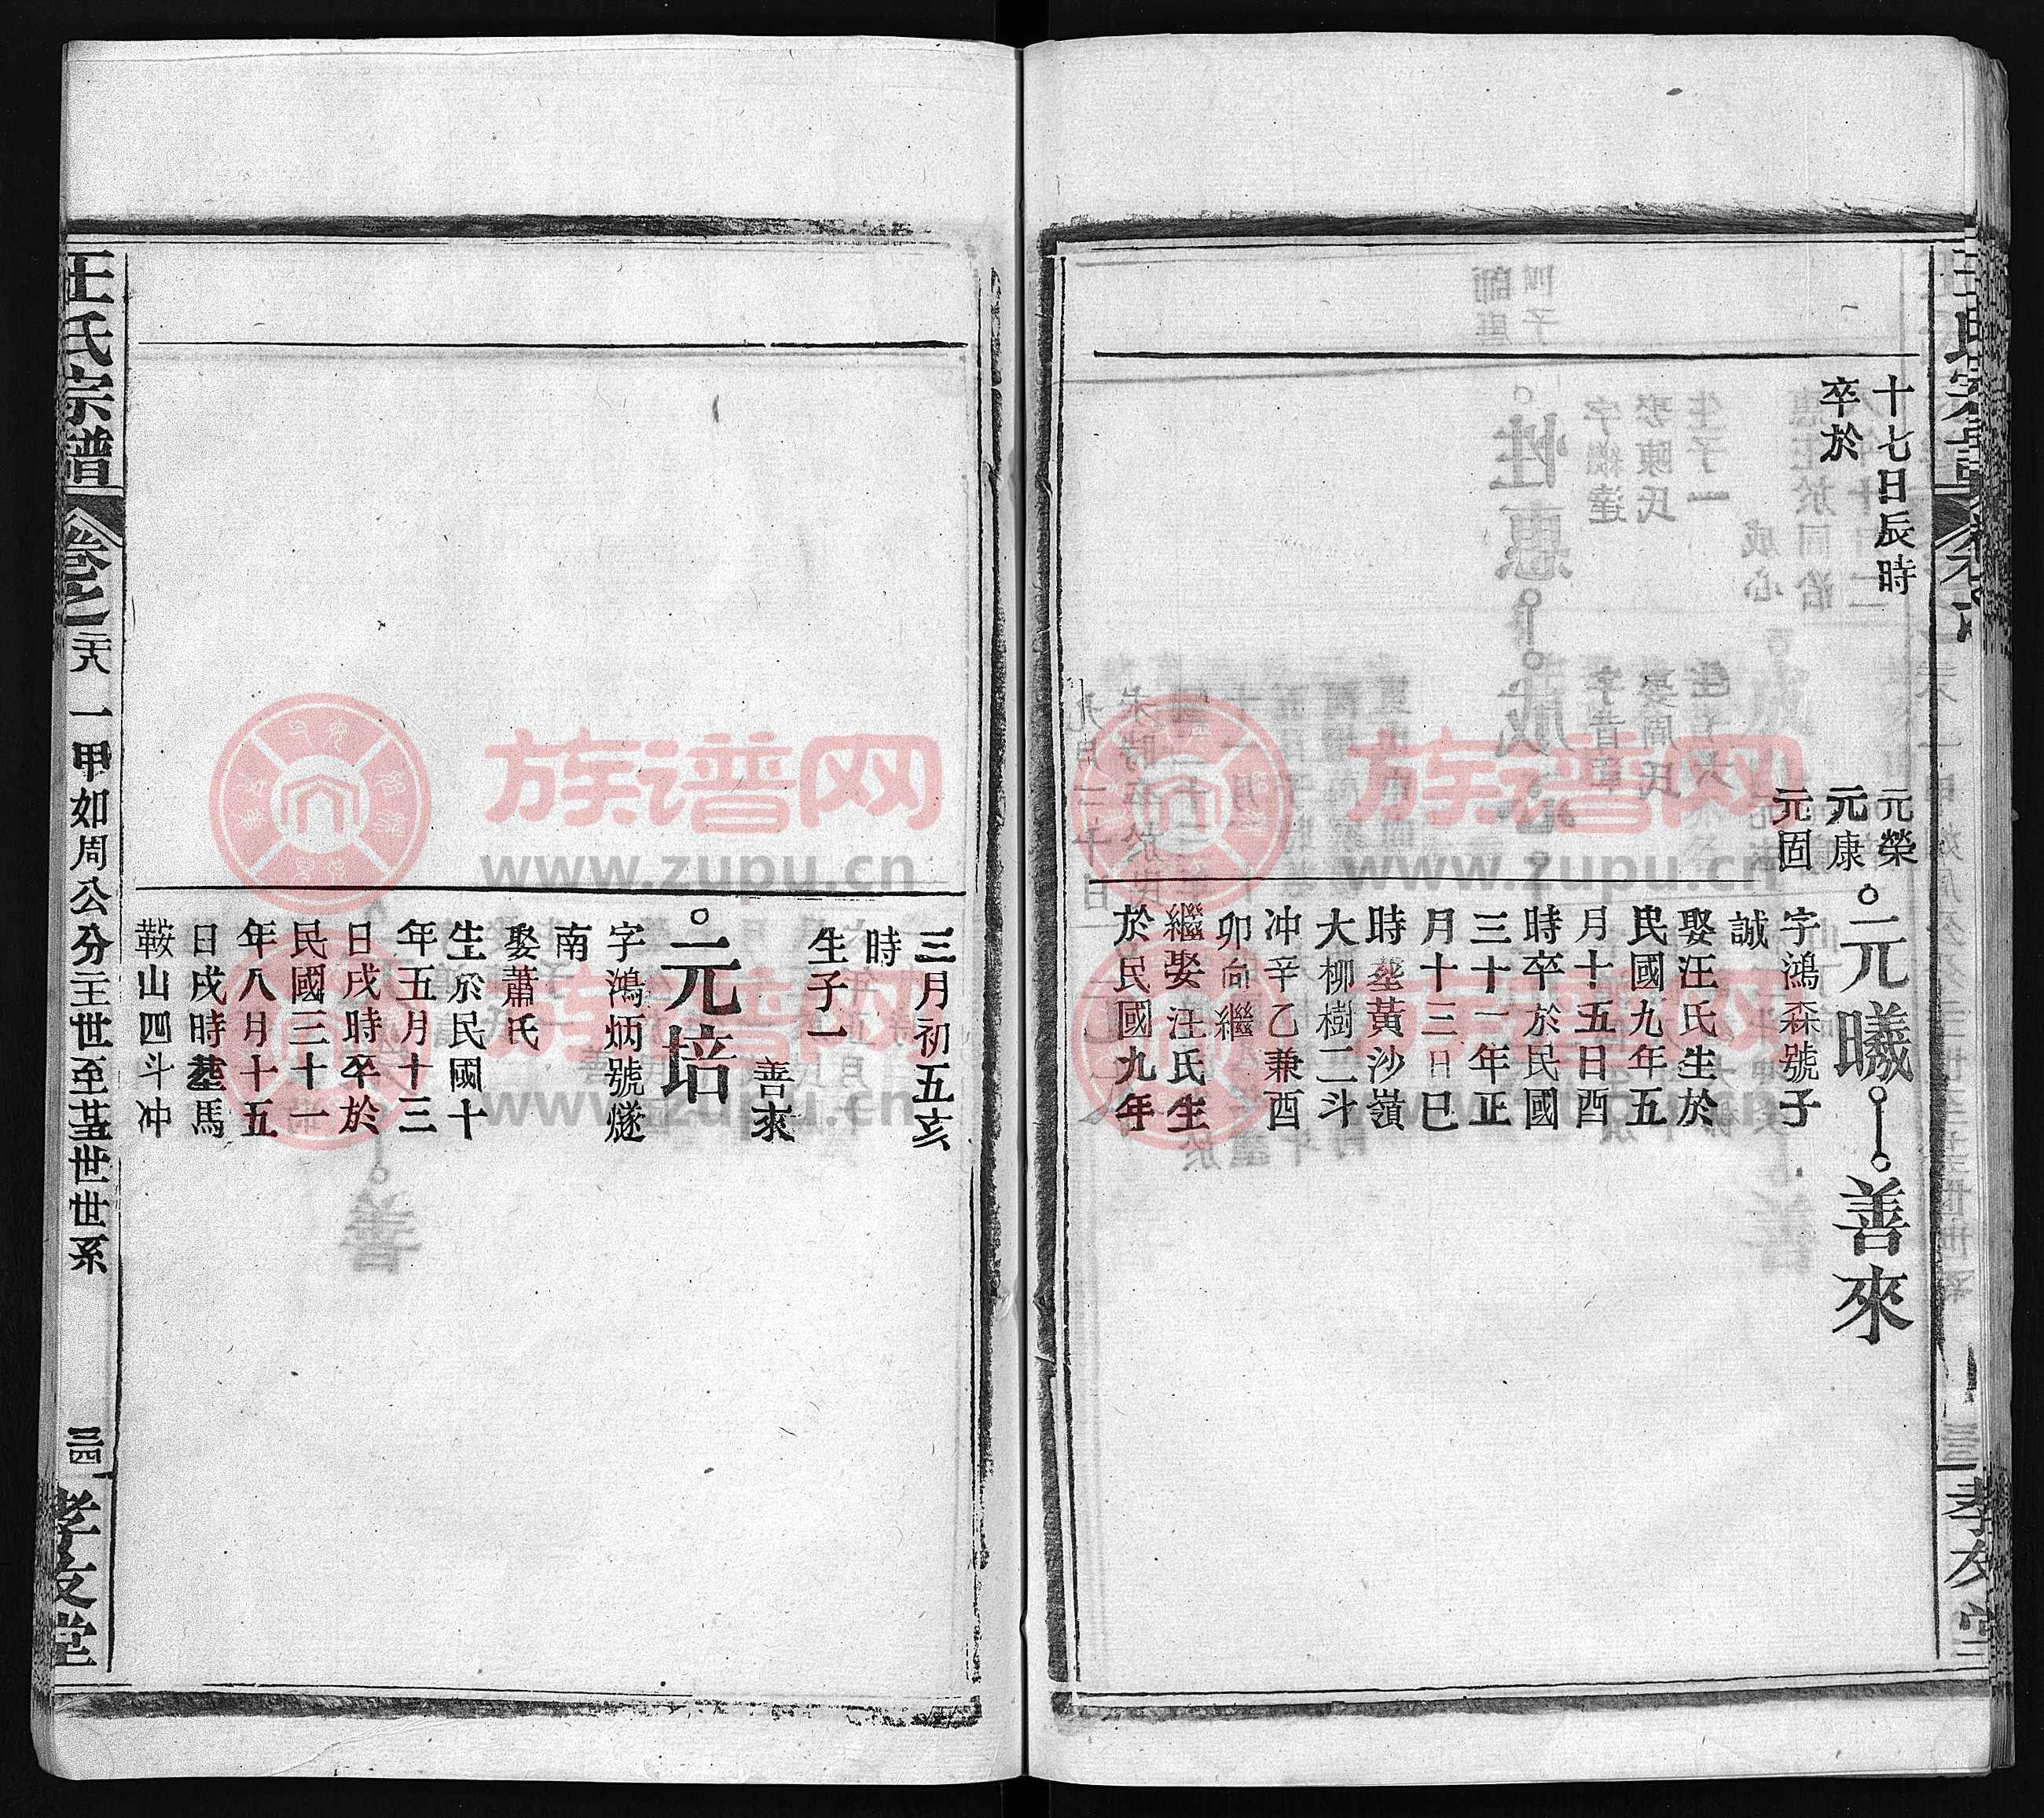 十七日辰時
卒於
元榮
元康
元固
元曦
善來
字鴻森號子
誠
娶汪氏生於
民國九年五
月十五日酉
時卒於民國
三十一年正
月十三日巳
時塟黃沙嶺
大柳樹二斗
冲辛乙兼酉
卯向繼
繼娶汪氏生
於民國九年
孝友堂
三月初五亥
時
生子一
善來
元培
字鴻炳號燧
南
娶蕭氏
生於民國十
年五月十三
日戌時卒於
民國三十一
年八月十五
日戌時塟馬
鞍山四斗冲
王氏宗譜
卷之
一甲如周公分
世至
世世系
三四
孝友堂
族谱网
www.zupu.cn
族谱网
www.zupu.cn
族谱网
www.zupu.cn
族谱网
www.zupu.cn